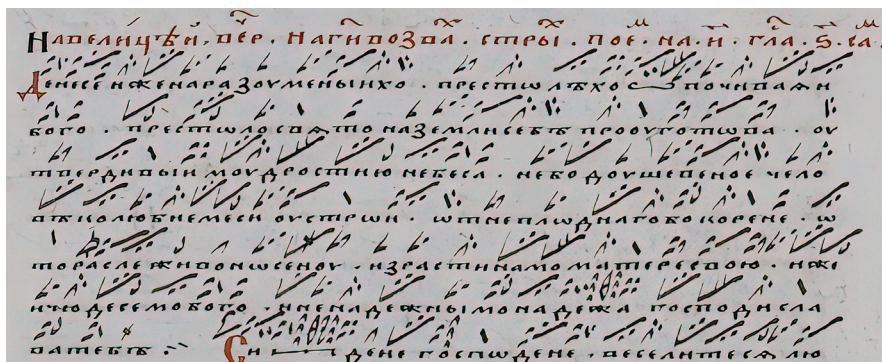 На велицѣи, вер. На ги возва. стры. пое. на. и. гла. ѕ. са.
Денесе иже на разоуменыихо . престолѣхо почиваяи
бого . престѡло свято на земли себѣ проуготѡва . оу
твердивыи моудростию небеса . небо доушевеное чело
вѣколюбиемеси оустрѡи . ѡт неплѡднаго бо корене . ѡ
торасле живоносеноу . израсти намо матерe свою . иже
и чюдесемо бого . и ненадежнымо надежа господи сла
ва тебѣ
Си дене госпѡдене . веселитеся лю